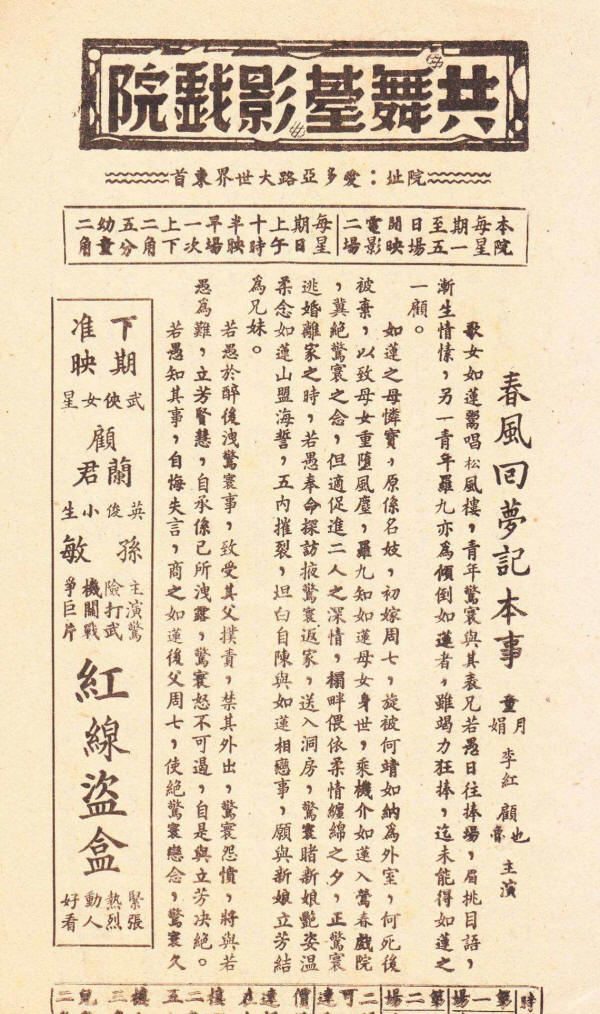 共舞臺影戲院
院址：愛多亞路大世界東首
本院每星期一至五日場開映電影二場
每星期日上午十時半映早場一次上下二角五分幼童二角
春風回夢記本事 童月娟 李紅 顧也魯 主演
歌女如蓮鬻唱松風樓，青年驚寰與其表兄若愚日往捧場，眉挑目語，
漸生情愫，另一青年羅九亦為傾倒如蓮者，雖竭力狂捧，迄未能得如蓮之
一顧。
如蓮之母憐寶，原係名妓，初嫁周七，旋被何靖如納為外室，何死後
被棄，以致母女重墮風塵，羅九知如蓮母女身世，乘機介如蓮入鶯春戲院
，冀絕驚寰之念，但適促進二人之深情，榻畔偎依柔情纏綿之夕，正驚寰
逃婚離家之時，若愚奉命探訪掖驚寰返家，送入洞房，驚寰睹新娘艷姿溫
柔念如蓮山盟海誓，五內摧裂，坦白自陳與如蓮相戀事，願與新娘立芳結
為兄妹。
若愚於醉後洩驚寰事，致受其父撲責，禁其外出，驚寰怨憤，將與若
愚為難，立芳賢慧，自承係已所洩露，驚寰怒不可遏，自是與立芳决絕。
若愚知其事，自悔失言，商之如蓮後父周七，使絕驚寰戀念，驚寰久
下期准映
武俠女星
顧蘭君
英俊小生
孫敏
主演驚險打武機關戰爭巨片
紅線盜盒
緊張熱烈動人好看
時
第一場
第二場